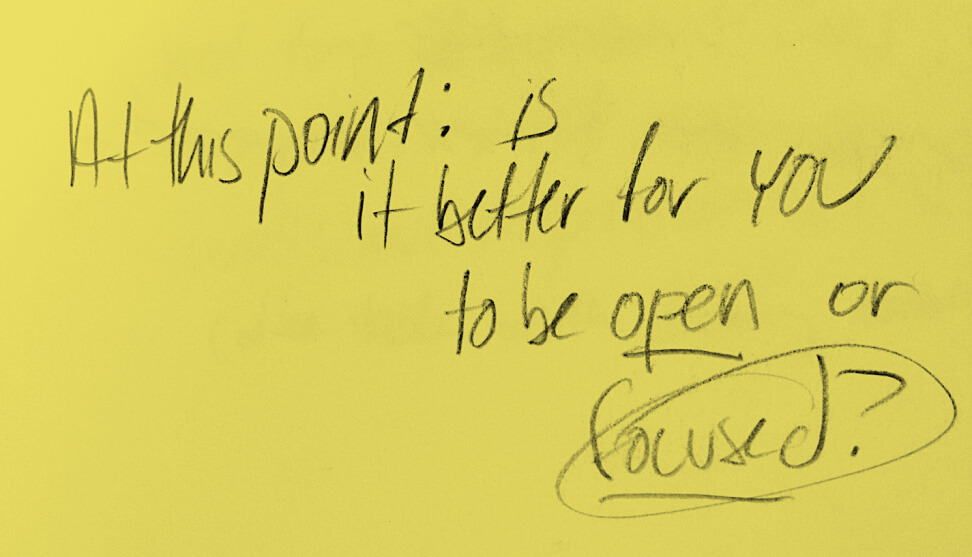 At this point: is
it better for you
to be open or
focused?